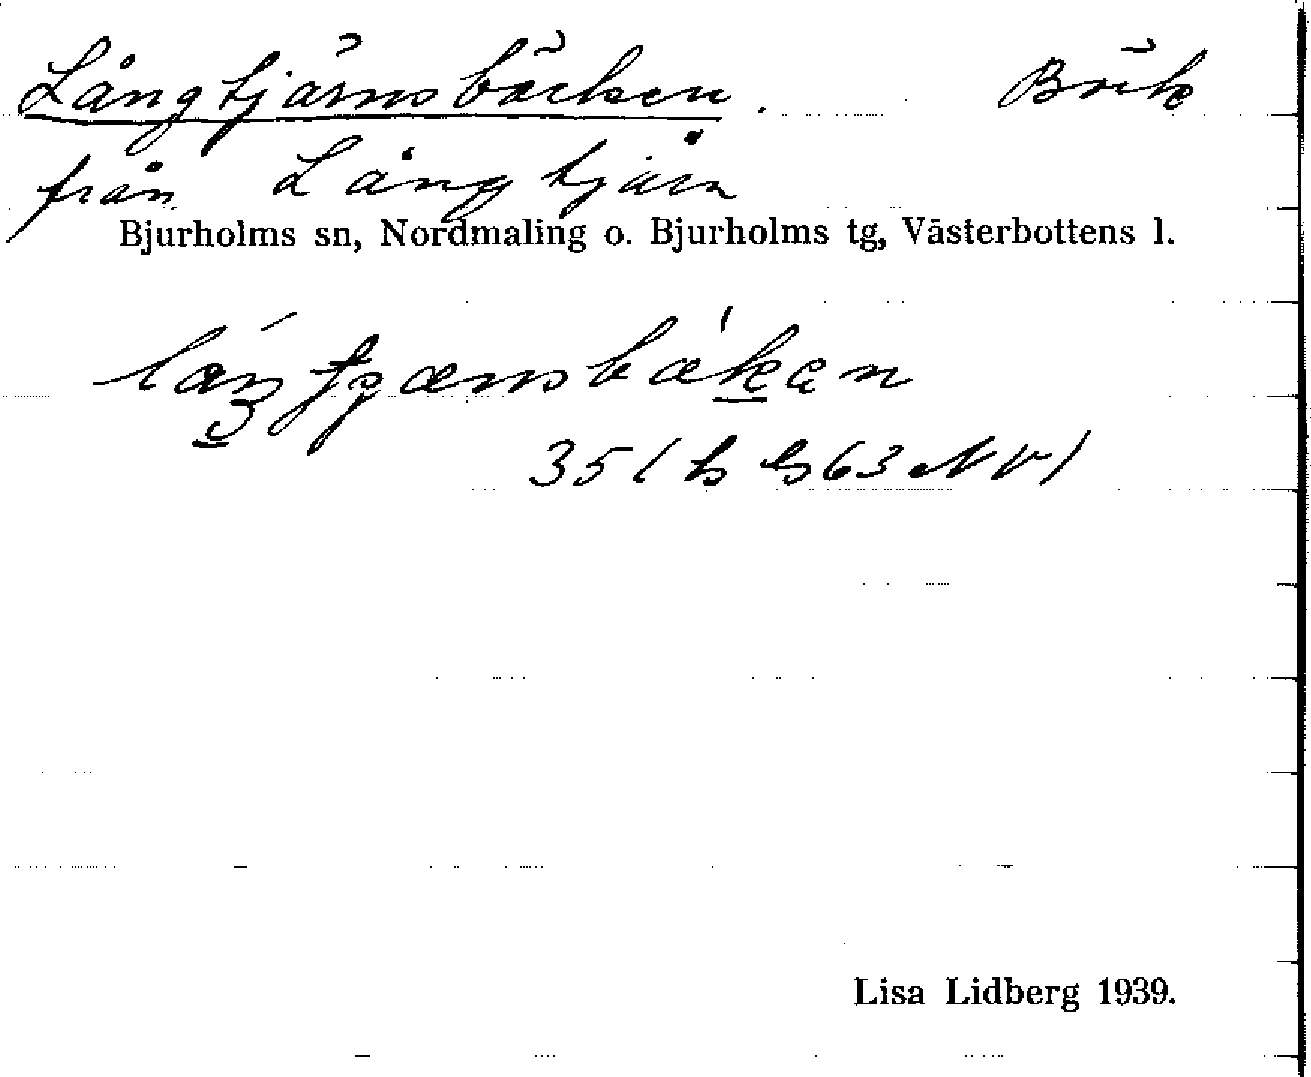 Långtjärnsbäcken. Bäck
från Långtjärn
Bjurholms sn, Nordmaling o. Bjurholms tg, Västerbottens l.
35 63 NV
Lisa Lidberg 1939.